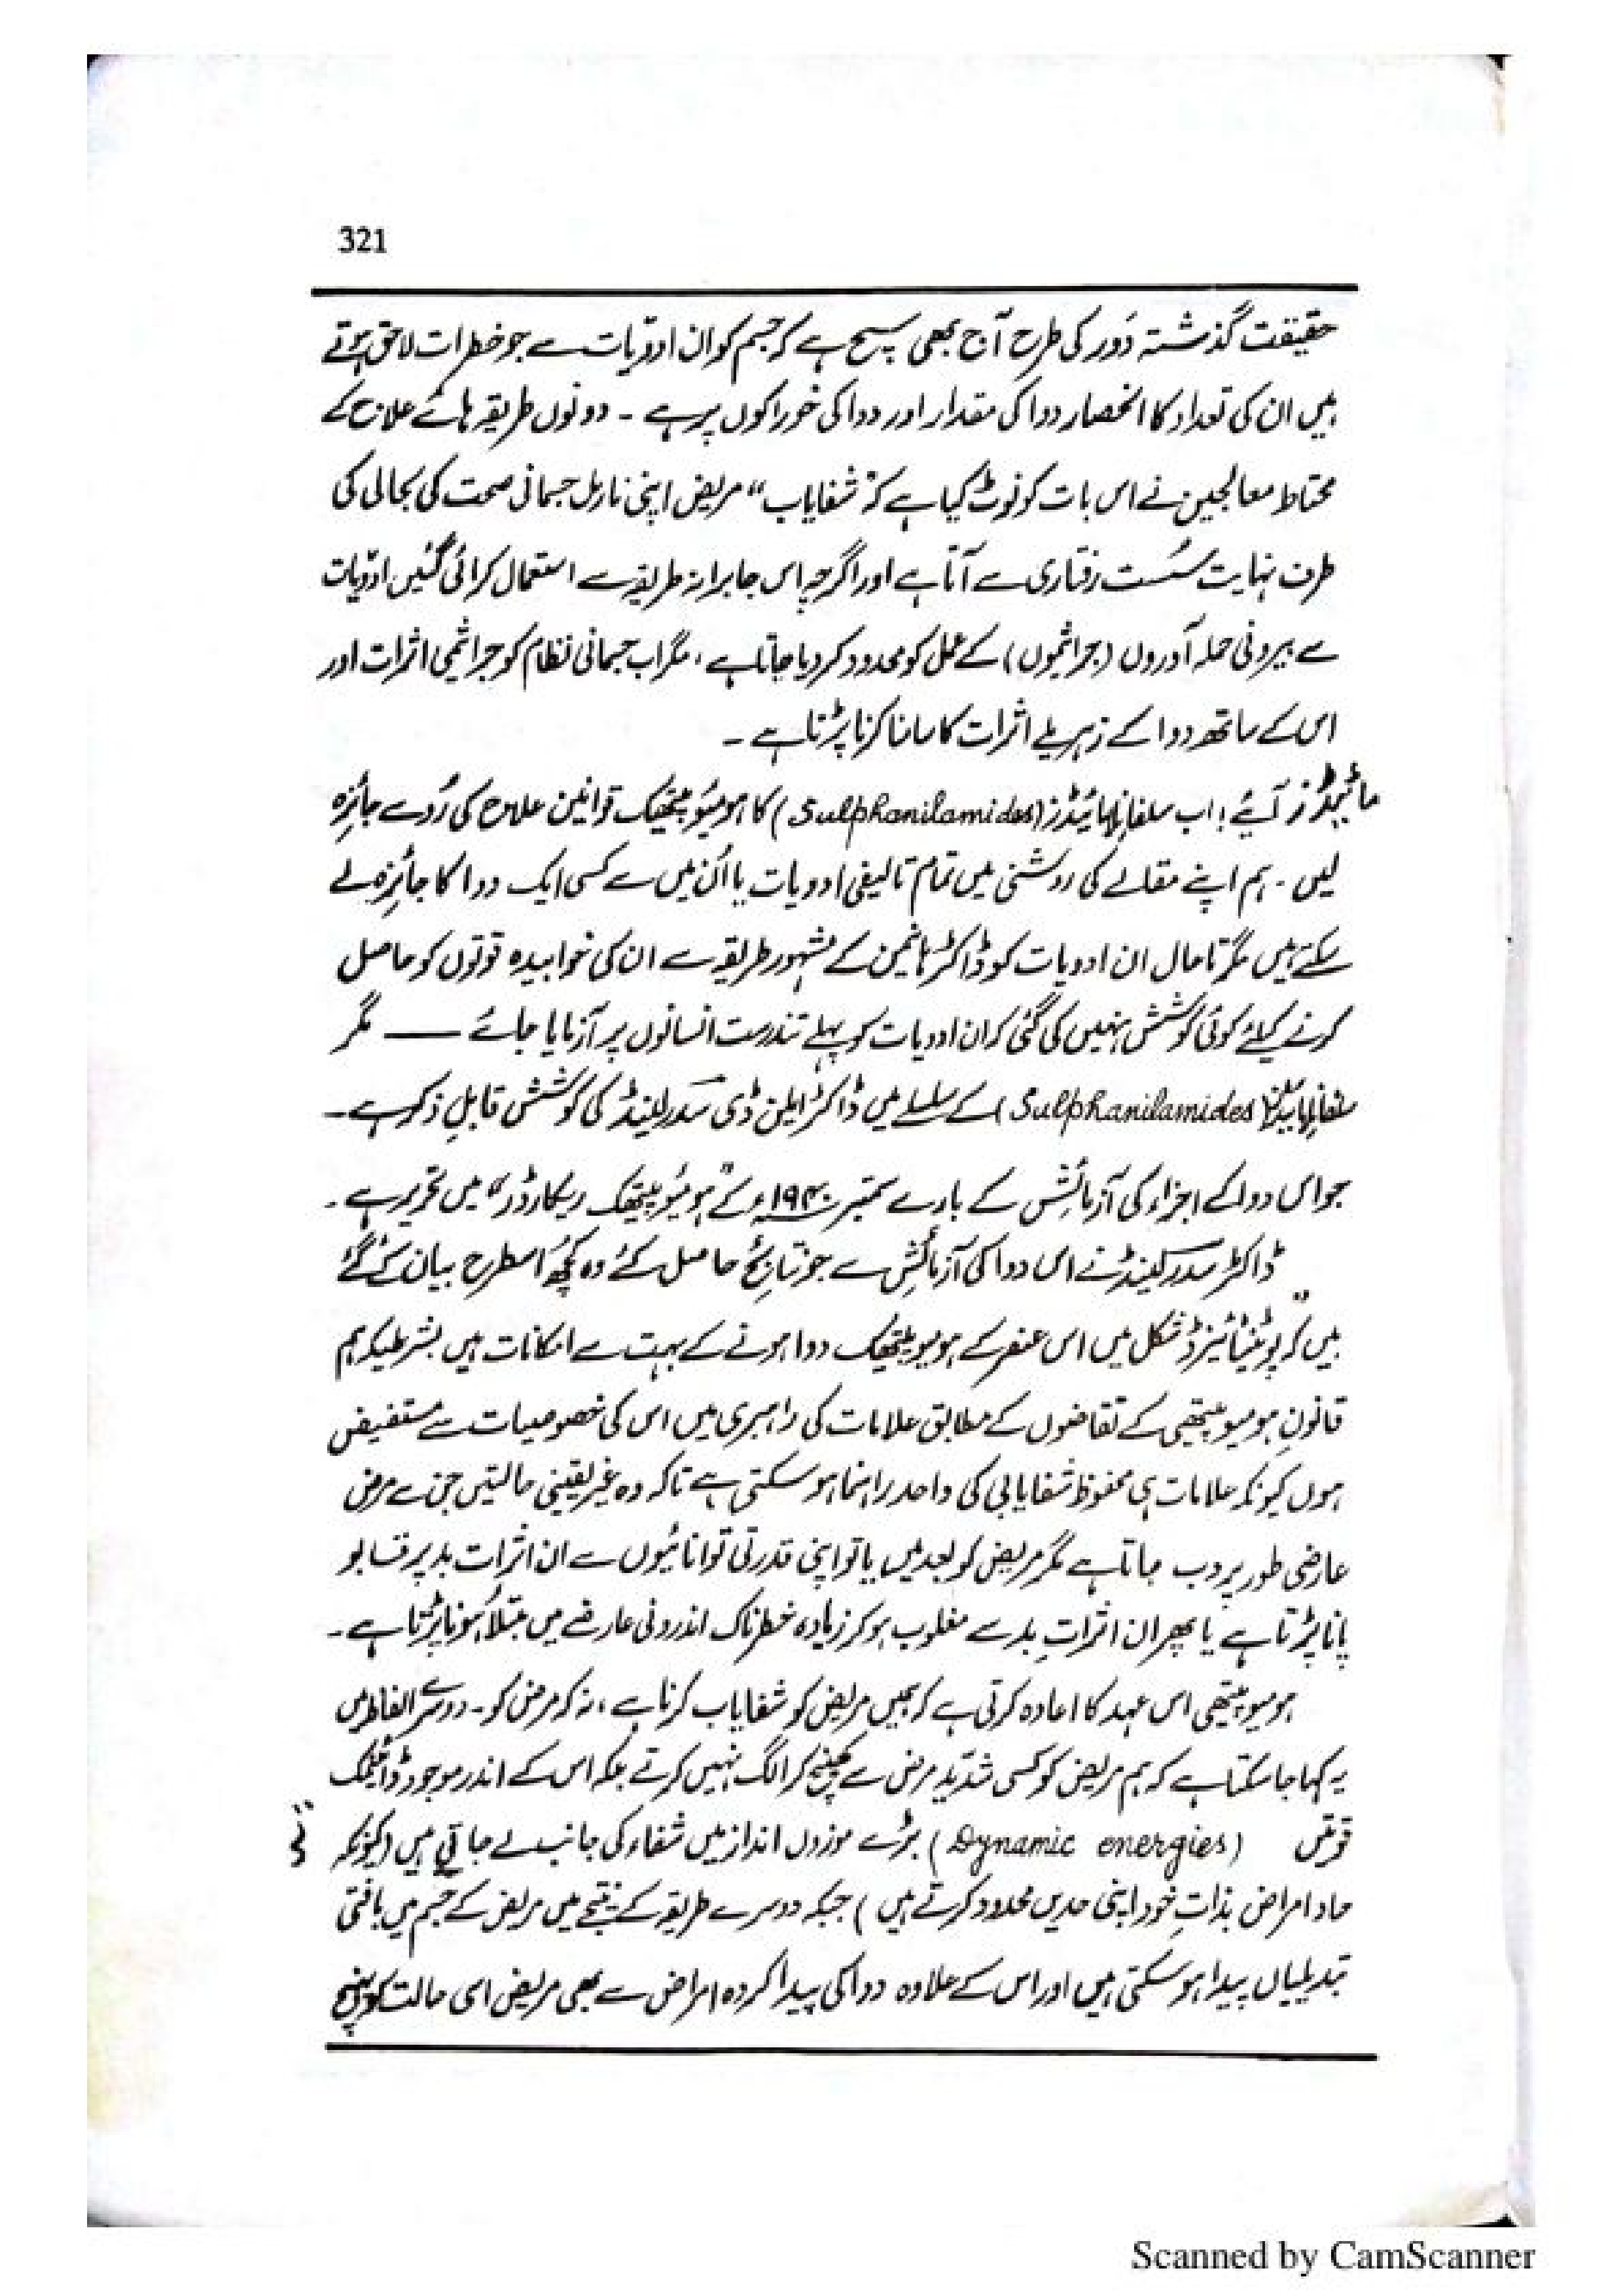 321
حقیقت گذشتہ دَور کی طرح آج بھی سچ ہے کہ جسم کو ان ادویات سے جو خطرات لاحق ہوتے
ہیں ان کی تعداد کا انحصار دوا کی مقدار اور دوا کی خوراکوں پر ہے ۔ دونوں طریقہ ہائے علاج کے
محتاط معالجین نے اس بات کو نوٹ کیا ہے کہ "شفایاب" مریض اپنی نارمل جسمانی صحت کی بحالی کی
طرف نہایت سُست رفتاری سے آتا ہے اور اگرچہ اس جابرانہ طریقہ سے استعمال کرائی گئیں ادویات
سے بیرونی حملہ آوروں (جراثیموں) کے عمل کو محدود کر دیا جاتا ہے ، مگر اب جسمانی نظام کو جراثیمی اثرات اور
اس کے ساتھ دوا کے زہریلے اثرات کا سامنا کرنا پڑتا ہے ۔
آیئے ! اب سلفانیلامائیڈز (Sulphanilamides) کا ہومیوپیتھک قوانین علاج کی رُو سے جائزہ
لیں ۔ ہم اپنے مقالے کی روشنی میں تمام تالیفی ادویات یا اُن میں سے کسی ایک دوا کا جائزہ لے
سکتے ہیں مگر تاحال ان ادویات کو ڈاکٹر ہانیمن کے مشہور طریقہ سے ان کی خوابیدہ قوتوں کو حاصل
کرنے کیلئے کوئی کوشش نہیں کی گئی کہ ان ادویات کو پہلے تندرست انسانوں پر آزمایا جائے —— مگر
سلفانیلامائیڈز (Sulphanilamides) کے سلسلے میں ڈاکٹر ایلن ڈی سدرلینڈ کی کوشش قابلِ ذکر ہے ۔
جو اس دوا کے اجزاء کی آزمائش کے بارے ستمبر ۱۹۴۰ء کے "ہومیوپیتھک ریکارڈر" میں تحریر ہے ۔
ڈاکٹر سدرلینڈ نے اس دوا کی آزمائش سے جو نتائج حاصل کئے وہ کچھ اسطرح بیان کئے گئے
ہیں کہ "پوٹینٹائیزڈ شکل میں اس عنصر کے ہومیوپیتھک دوا ہونے کے بہت سے امکانات ہیں بشرطیکہ ہم
قانونِ ہومیوپیتھی کے تقاضوں کے مطابق علامات کی راہبری میں اس کی خصوصیات سے مستفیض
ہوں کیونکہ علامات ہی محفوظ شفایابی کی واحد راہنما ہو سکتی ہے تاکہ وہ غیر یقینی حالتیں جن سے مرض
عارضی طور پر دب جاتا ہے مگر مریض کو بعد میں یا تو اپنی قدرتی توانائیوں سے ان اثرات بد پر قابو
پانا پڑتا ہے یا پھر ان اثراتِ بد سے مغلوب ہو کر زیادہ خطرناک اندرونی عارضے میں مبتلا ہونا پڑتا ہے ۔
ہومیوپیتھی اس عہد کا اعادہ کرتی ہے کہ ہمیں مریض کو شفایاب کرنا ہے ، نہ کہ مرض کو ۔ دوسرے الفاظ میں
یہ کہا جا سکتا ہے کہ ہم مریض کو کسی شدید مرض سے کھینچ کر الگ نہیں کرتے بلکہ اس کے اندر موجود ڈائنیمک
قوتیں (Dynamic energies) بڑے موزوں انداز میں شفاء کی جانب لے جاتی ہیں (کیونکہ
حاد امراض بذاتِ خود اپنی حدیں محدود کرتے ہیں) جبکہ دوسرے طریقہ کے نتیجے میں مریض کے جسم میں بافتی
تبدیلیاں پیدا ہو سکتی ہیں اور اس کے علاوہ دوا کی پیدا کردہ امراض سے بھی مریض اسی حالت کو پہنچ
Scanned by CamScanner